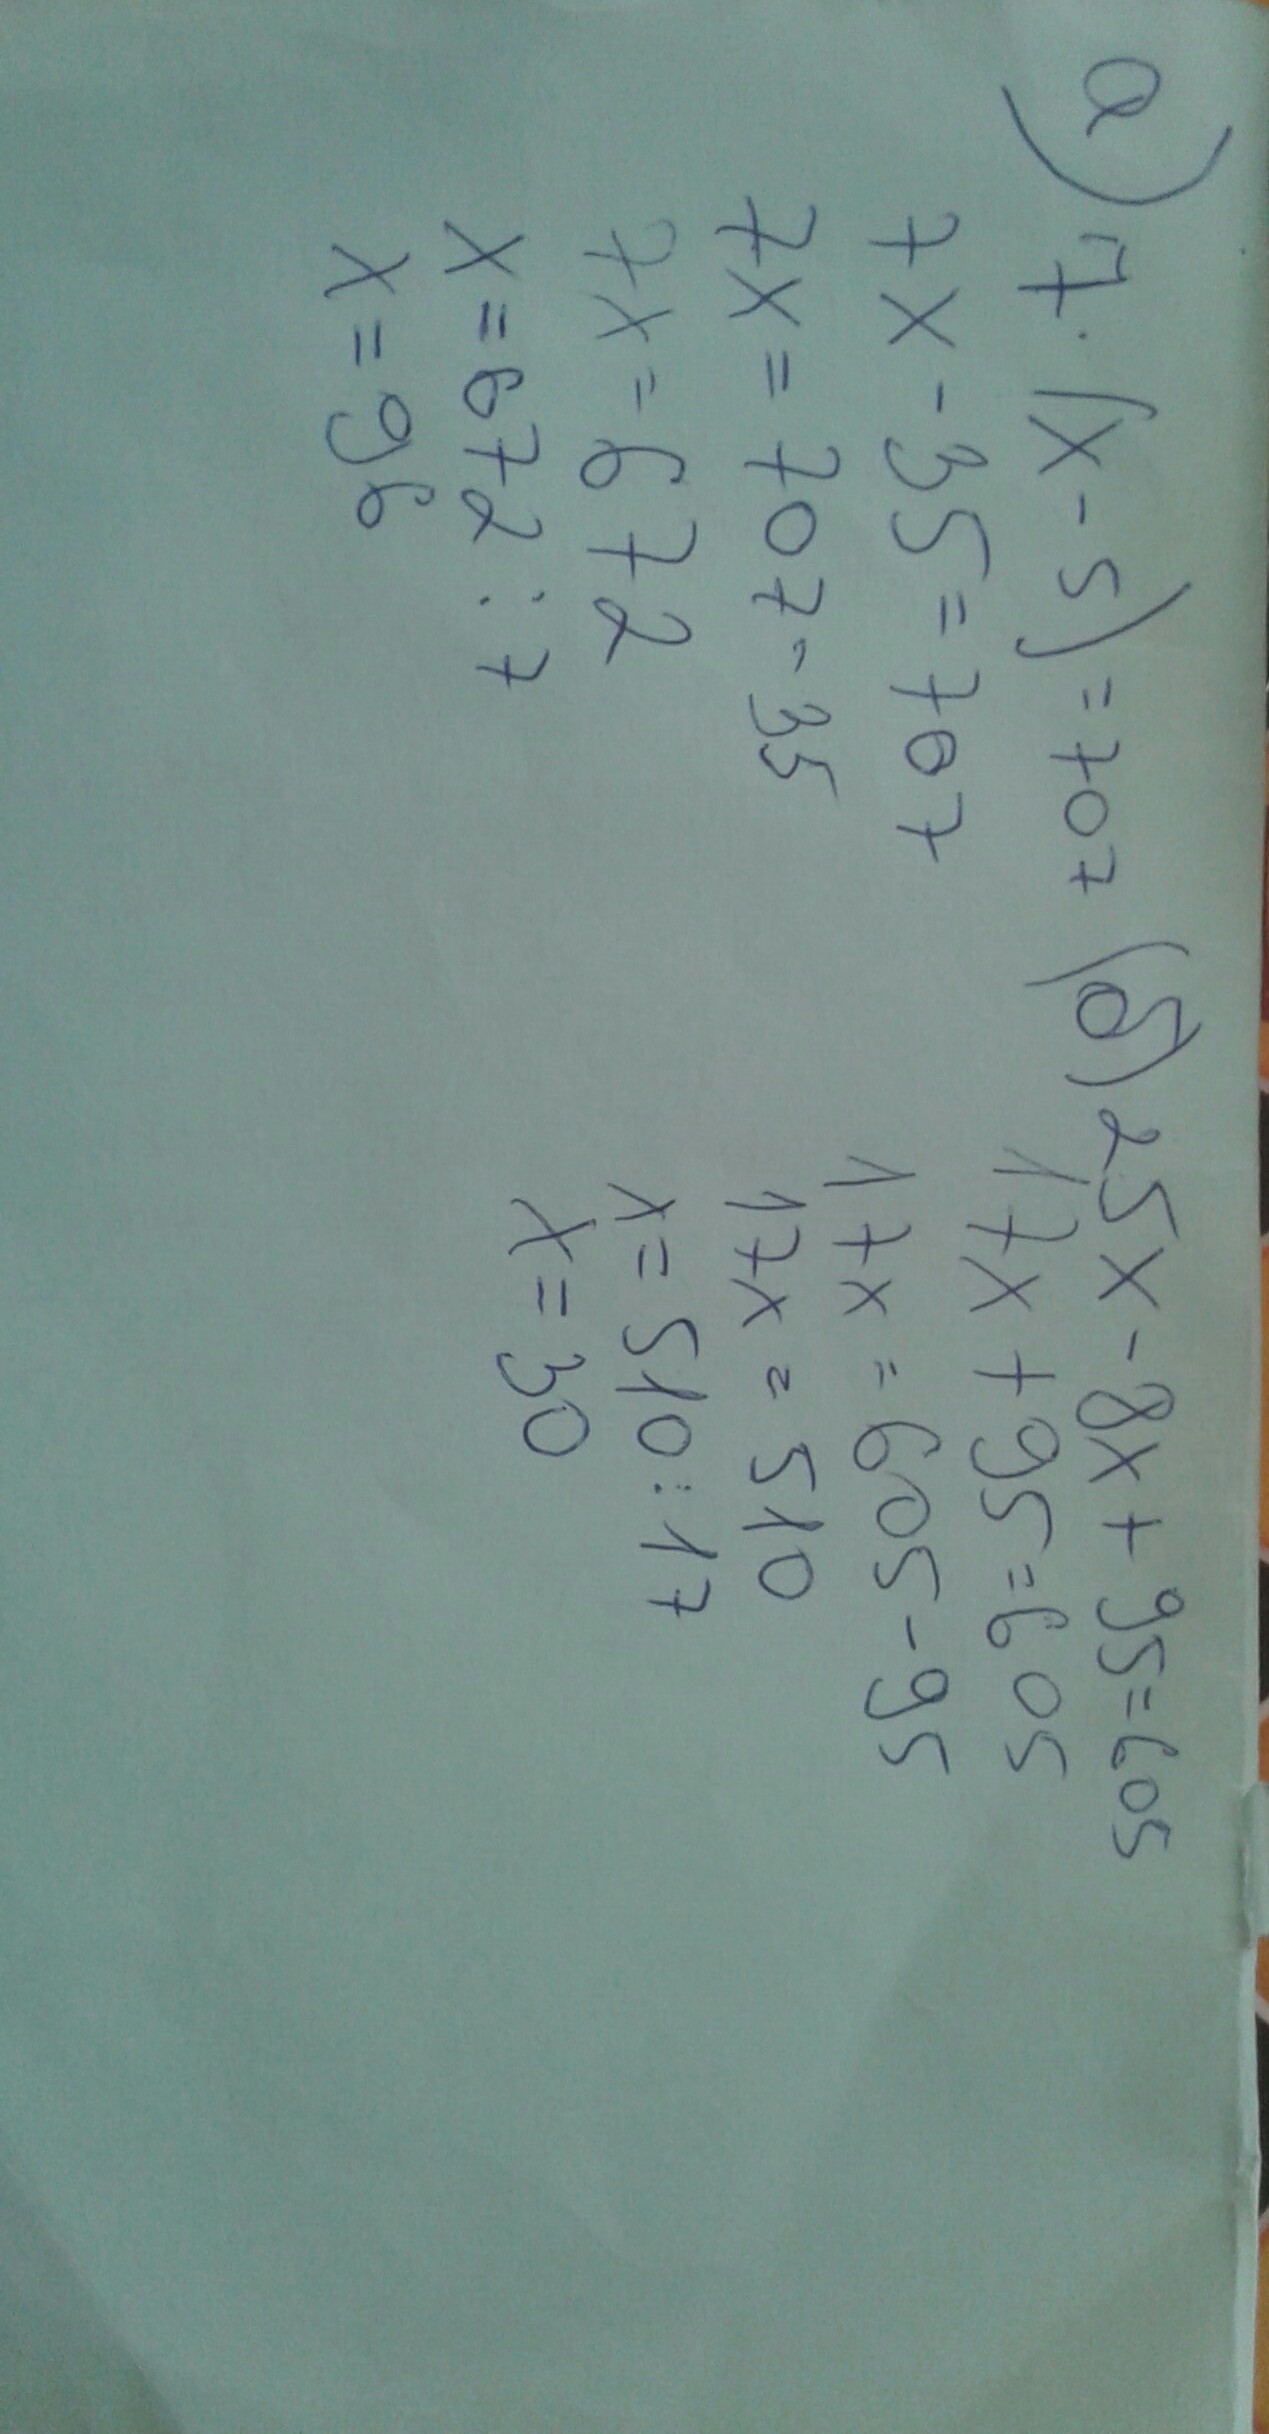 а) 7·(x-5)=707
7x-35=707
7x=707-35
7x=672
x=672:7
x=96
б) 25x-8x+95=605
17x+95=605
17x=605-95
17x=510
x=510:17
x=30